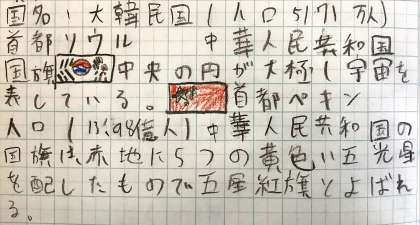 国名・大韓民国(人口5171万人)
首都ソウル 中華人民共和国
国旗 中央の円が大極し宇宙を
表している。 首都ペキン
人口(13,98億人)中華人民共和国の
国旗は、赤地に5つの黄色い五光星
を配したもので五星紅旗とよばれ
る。